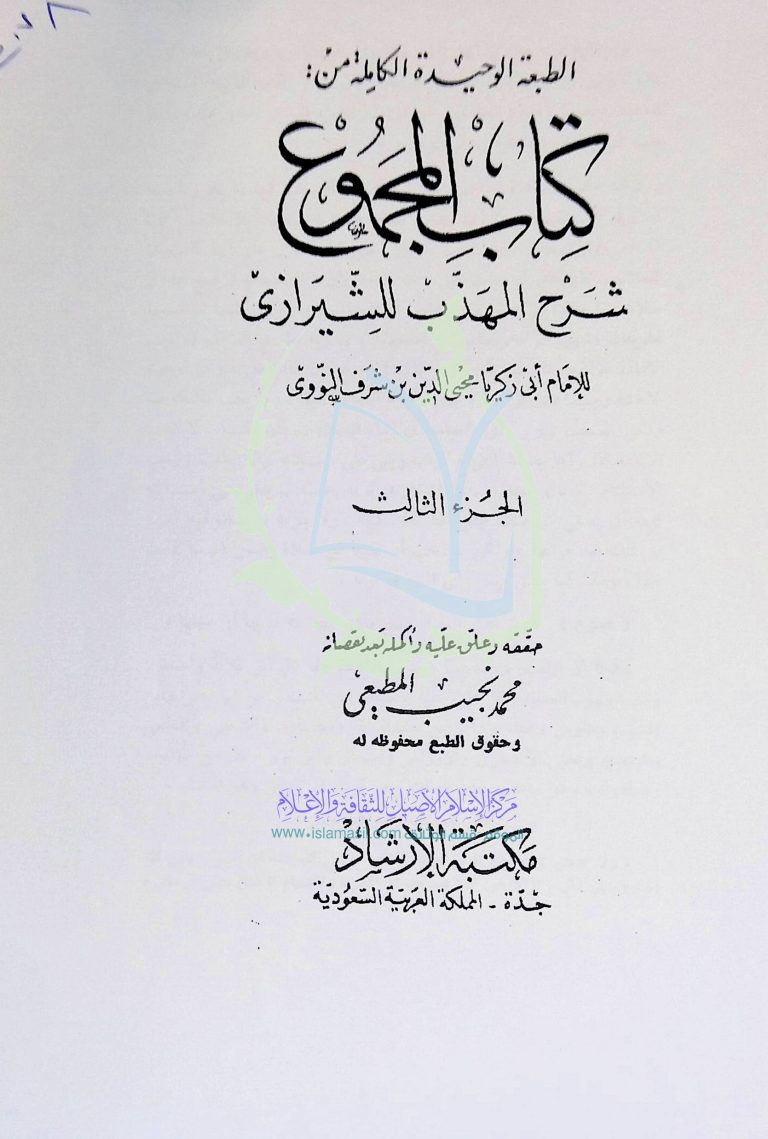 الطبعة الوحيدة الكاملة من:
كِتَابُ المَجْمُوع
شَرْح المهَذَّبْ للشِّيرَازىْ
للإمَام أبى زكريّا محيى الدّين بْن شرَف النّووىْ
الجُزء الثالِث
حققه وعلق عليه وأكمله بعد نقصانه
محمد نجيب المطيعى
وحقوق الطبع محفوظه له
مركز الإسلام الأصيل للثقافة والإعلام
www.islamasil.com
مكتبة الإرشاد
جدّة - المملكة العربية السّعُوديّة